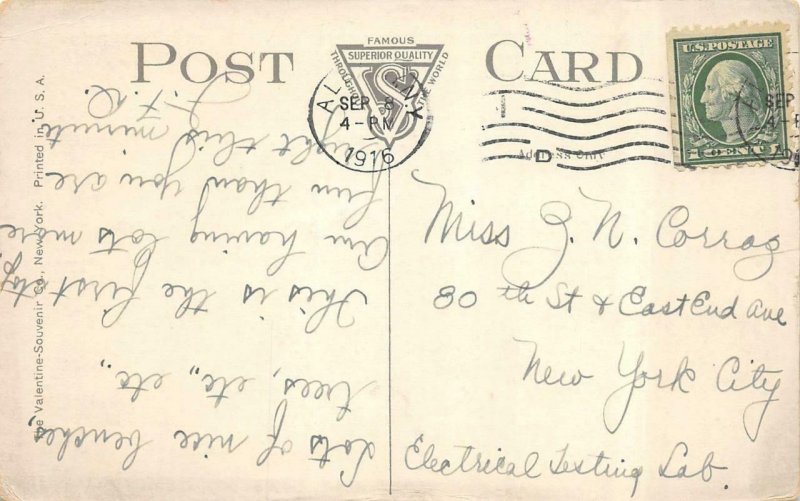 POST CARD
FAMOUS
SUPERIOR QUALITY
THROUGHOUT THE WORLD
SEP 8
4-PM
1916
U.S. POSTAGE
1 CENT 1
SEP
4-P
Address Only
Miss Z. N. Corrag
80th St & East End Ave
New York City
Electrical Testing Lab.
Lots of nice benches,
trees, etc., etc.
This is the first stop.
Am having lots more
fun than you are
right this minute
The Valentine-Souvenir Co., New York. Printed in U. S. A.